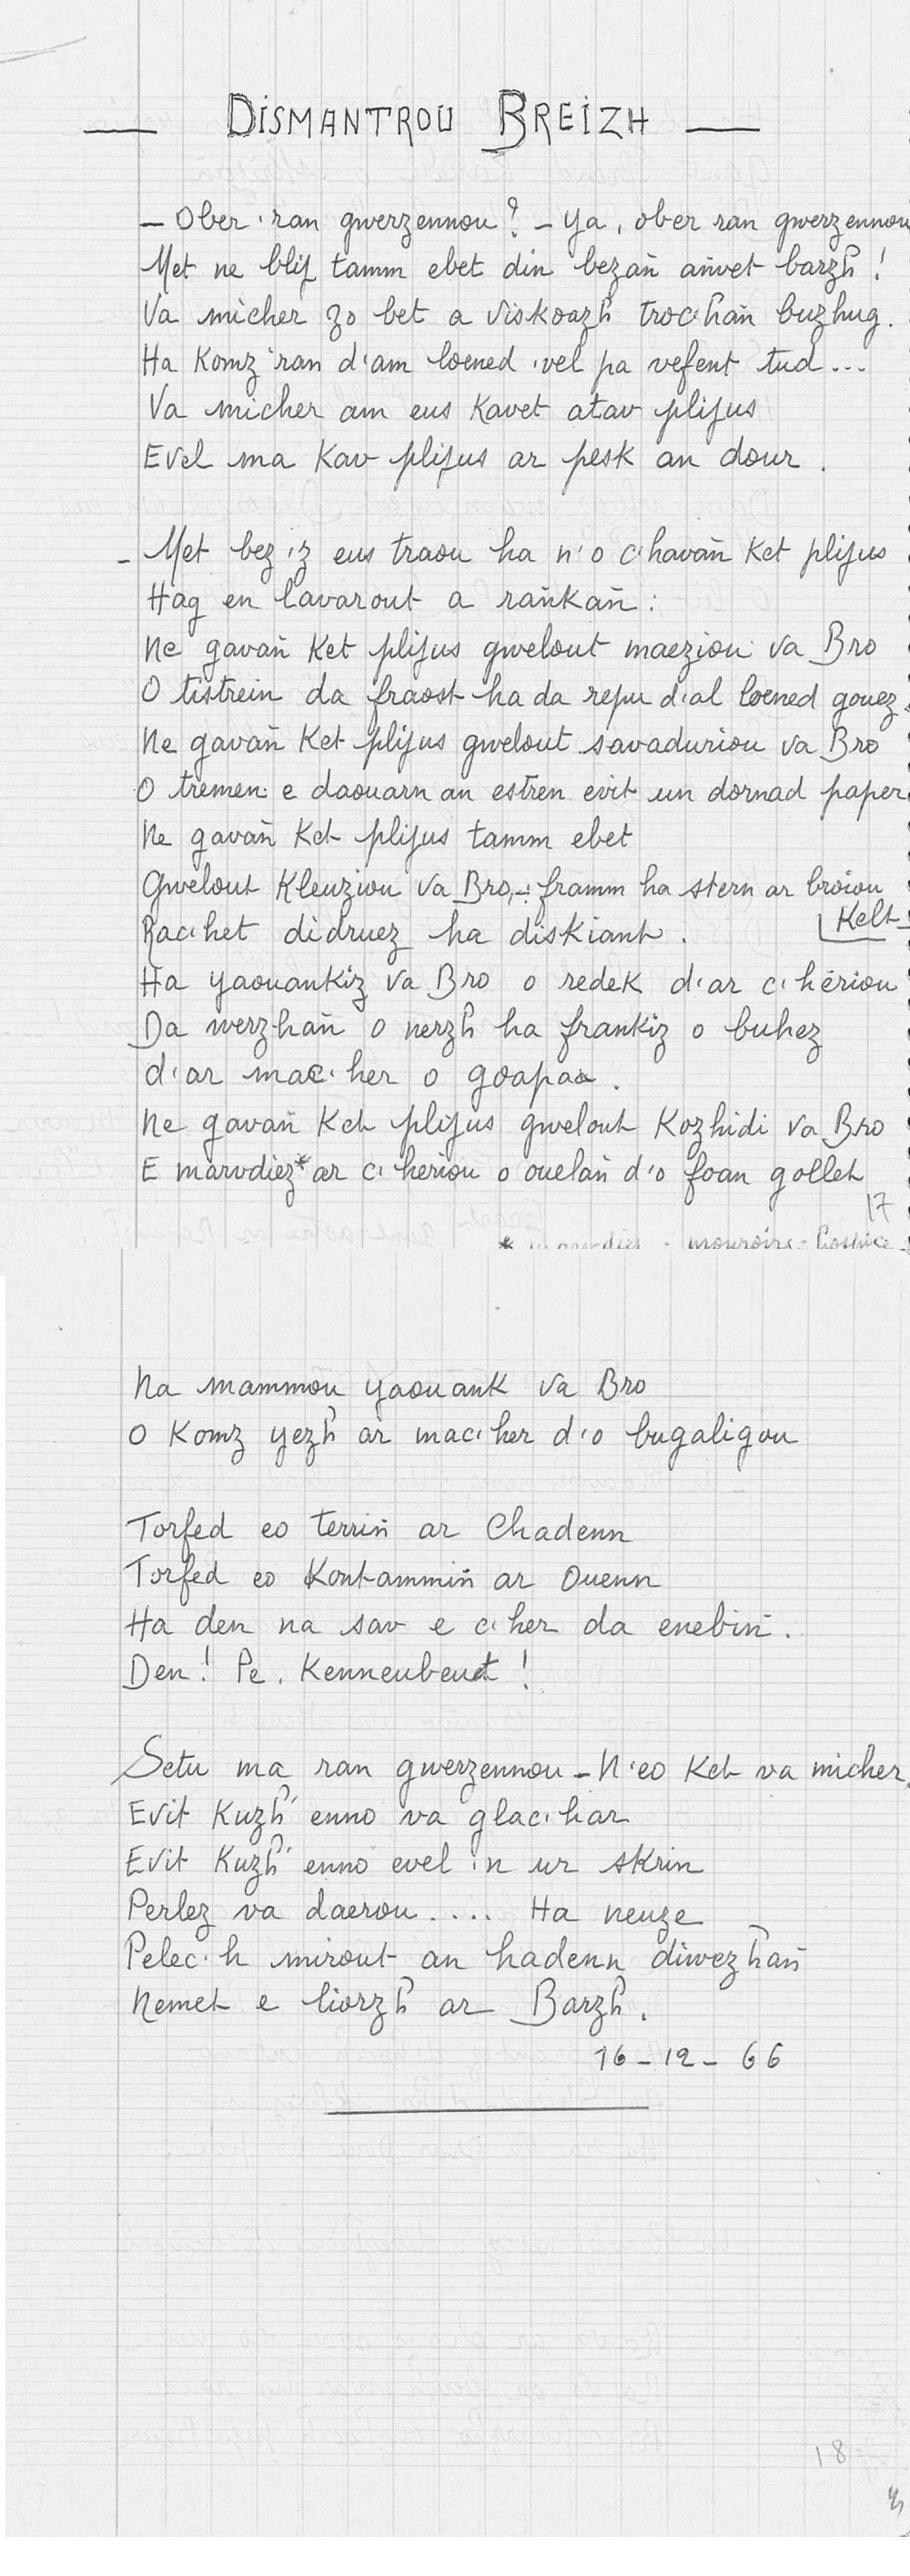 — DISMANTROU BREIZH —
— Ober 'ran gwerzennou ? – Ya, ober ran gwerzennou
Met ne blij tamm ebet din bezañ añvet barzh !
Va micher zo bet a viskoazh troc'hañ buzhug.
Ha Komz 'ran d'am loened 'vel pa vefent tud...
Va micher am eus Kavet atav plijus
Evel ma Kav plijus ar pesk an dour .
– Met bez 'z eus traou ha n'o c'havañ Ket plijus
Hag en lavarout a rañkañ :
Ne gavañ Ket plijus gwelout maeziou va Bro
O tistrein da fraost ha da repu d'al loened gouez
Ne gavañ Ket plijus gwelout savaduriou va Bro
O tremen e daouarn an estren evit un dornad paper
Ne gavañ Ket plijus tamm ebet
Gwelout Kleuziou va Bro, – framm ha stern ar broiou
Kelt –
Rac'het didruez ha diskiant .
Ha yaouankiz va Bro o redek d'ar c'hêriou
Da werzhañ o nerzh ha frankiz o buhez
d'ar mac'her o goapaa .
Ne gavañ Ket plijus gwelout Kozhidi va Bro
E marvdiez* ar c'heriou o ouelañ d'o foan gollet
17
* marvdiez - mouroirs - hospice
Na mammou yaouank va Bro
O Komz yezh ar mac'her d'o bugaligou
Torfed eo terriñ ar Chadenn
Torfed eo Kontammiñ ar Ouenn
Ha den na sav e c'her da enebiñ .
Den ! Pe . Kenneubeut !
Setu ma ran gwerzennou – N'eo Ket va micher,
Evit Kuzh' enno va glac'har
Evit Kuzh' enno evel 'n ur skrin
Perlez va daerou .... Ha neuze
Pelec'h mirout an hadenn diwezhañ
Nemet e liorzh ar Barzh .
16 – 12 – 66
18